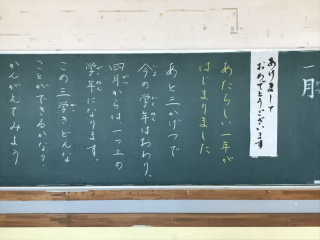 一月
あけまして
おめでとうございます
あたらしい一年が
はじまりました
あと三かげつで
今の学年はおわり、
四月からは一つ上の
学年になります。
この三学きどんな
ことができるかな？
かんがえてみよう